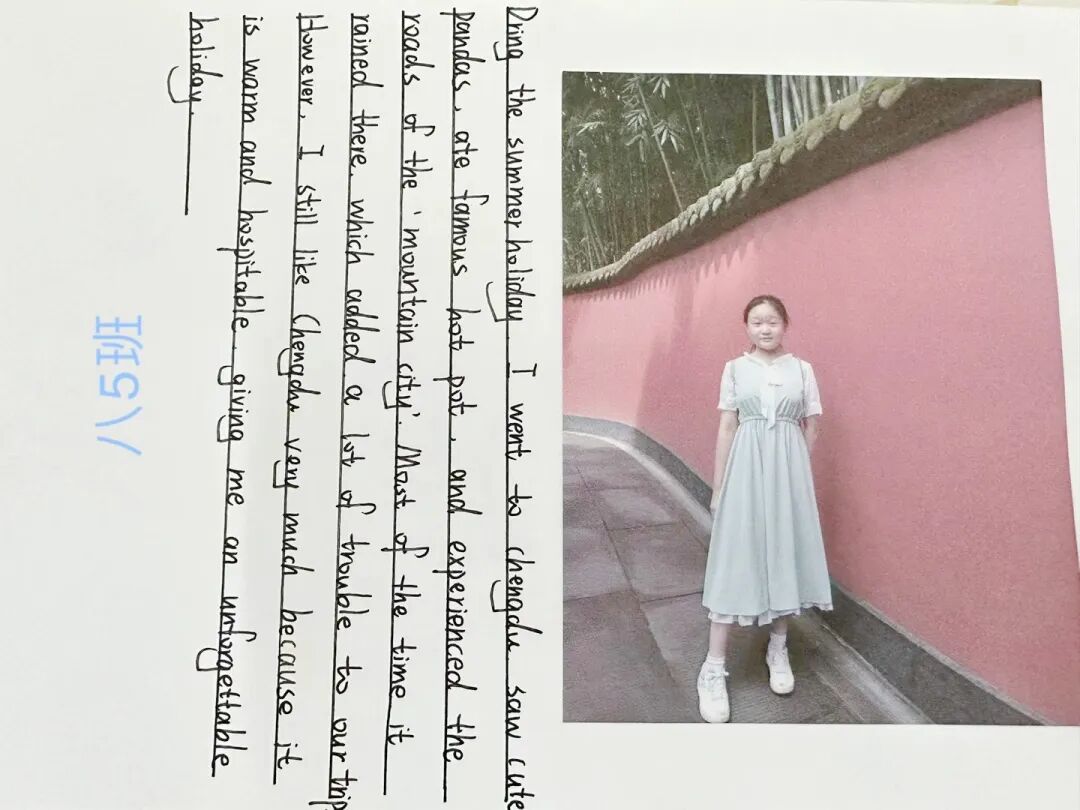 Dring the summer holiday I went to chengdu saw cute
pandas, ate famous hot pot, and experienced the
roads of the 'mountain city'. Most of the time it
rained there, which added a lot of trouble to our trip
However, I still like Chengdu very much because it
is warm and hospitable, giving me an unforgettable
holiday.
八5班